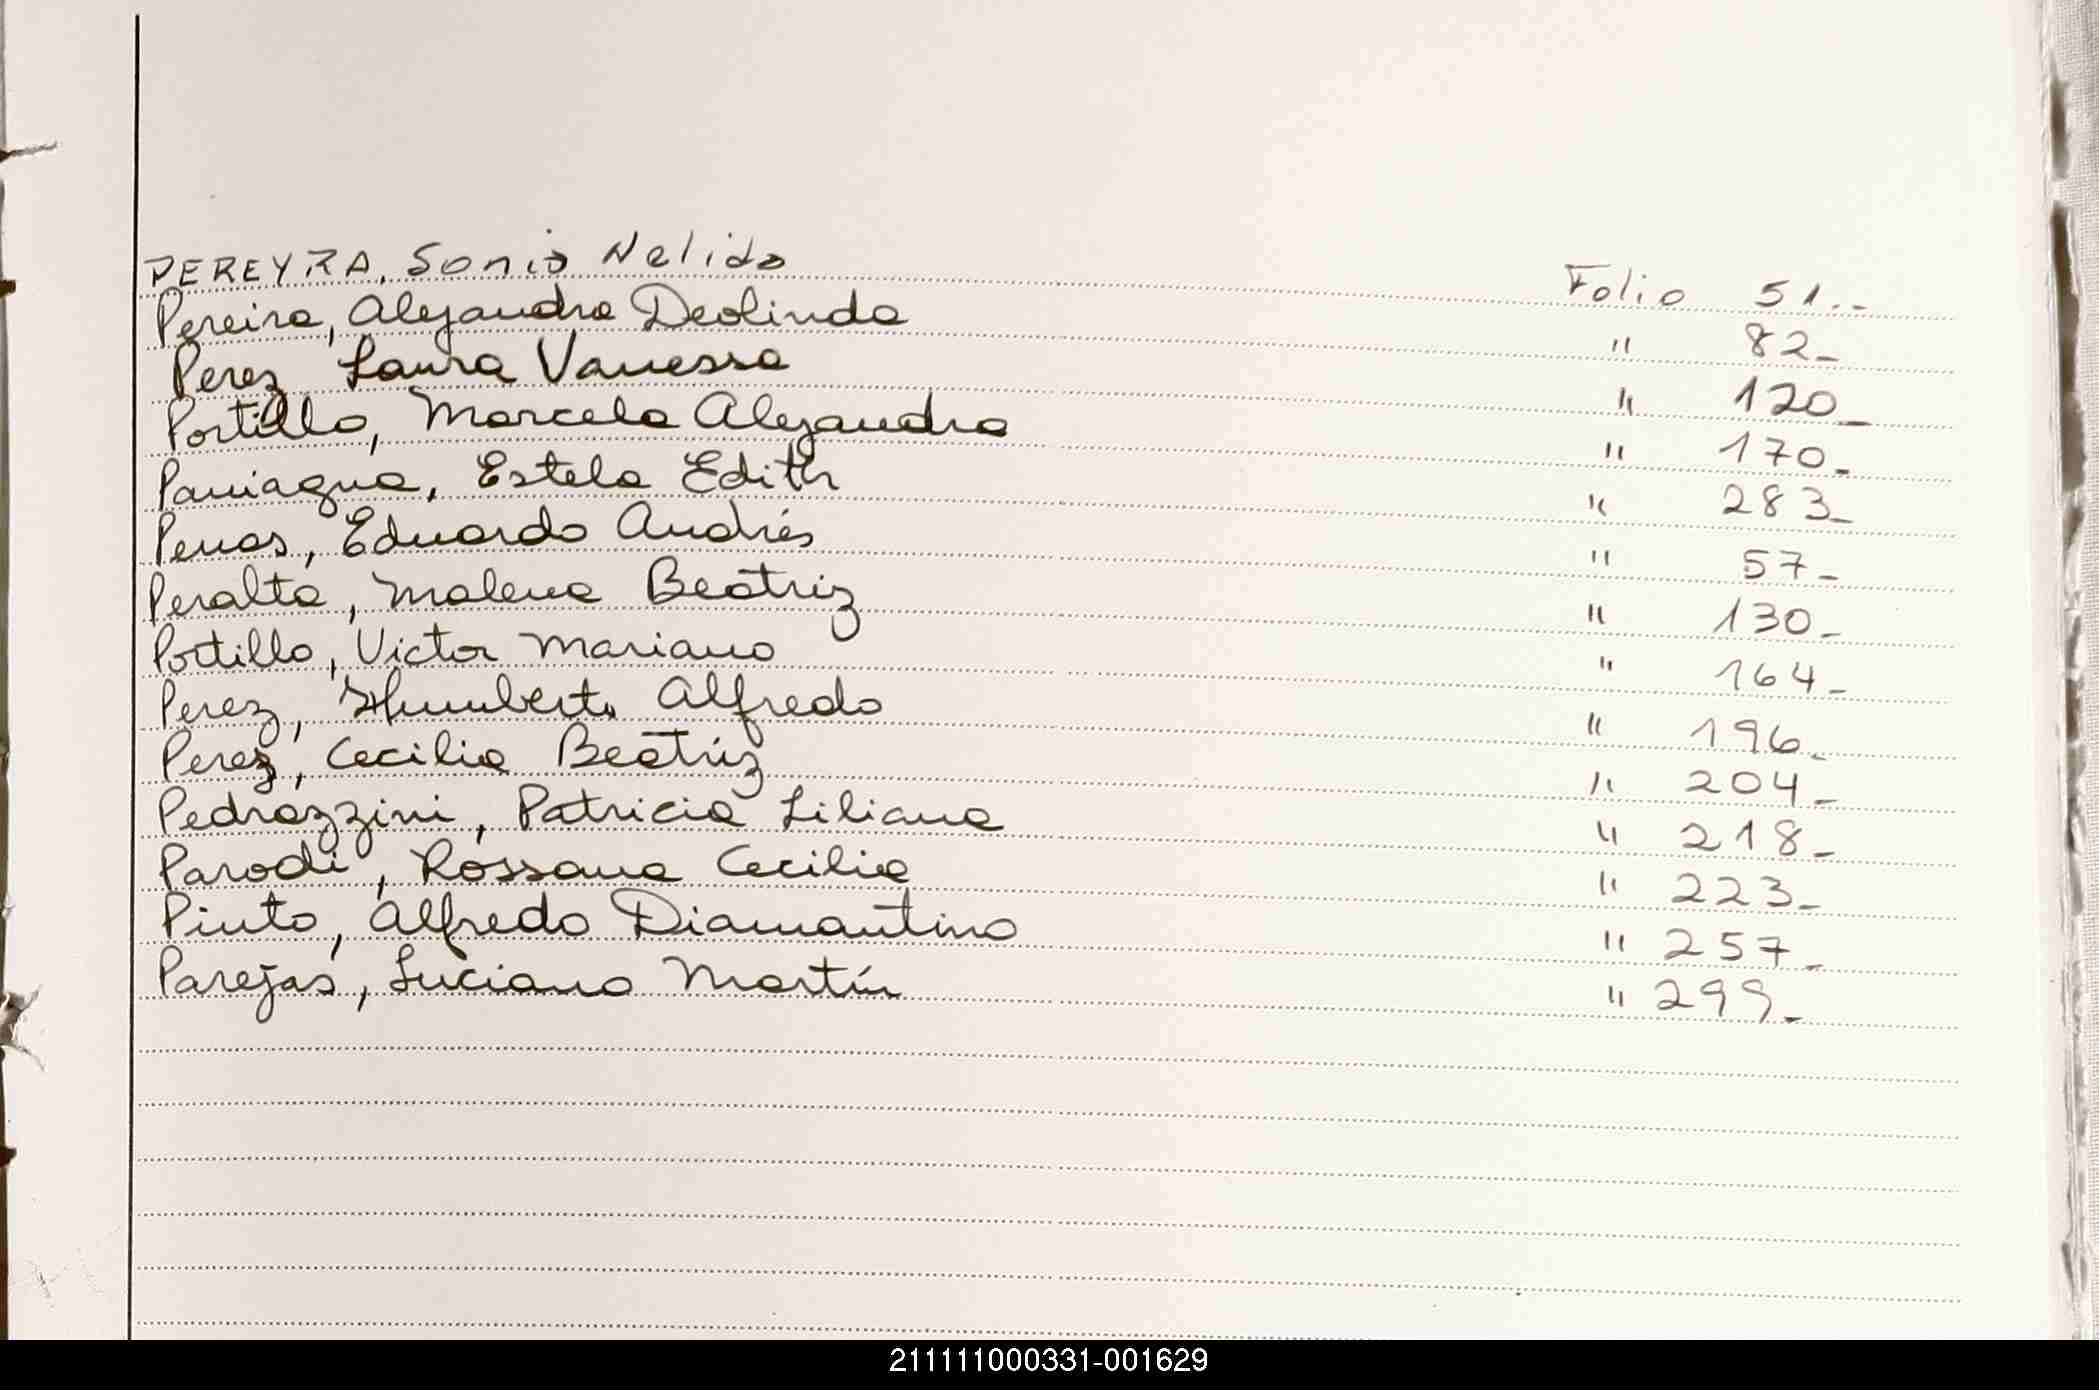 PEREYRA, Sonia Nelida Folio 51.-
Pereira, Alejandra Deolinda " 82-
Perez Laura Vanessa " 120-
Portillo, Marcela Alejandra " 170-
Paniagua, Estela Edith " 283-
Penas, Eduardo Andrés " 57-
Peralta, Malena Beatriz " 130-
Portillo, Victor Mariano " 164-
Perez, Humberto Alfredo " 196-
Perez, Cecilia Beatríz " 204-
Pedrazzini, Patricia Liliana " 218-
Parodi, Rossana Cecilia " 223-
Pinto, Alfredo Diamantino " 257-
Parejas, Luciano Martín " 299-
211111000331-001629